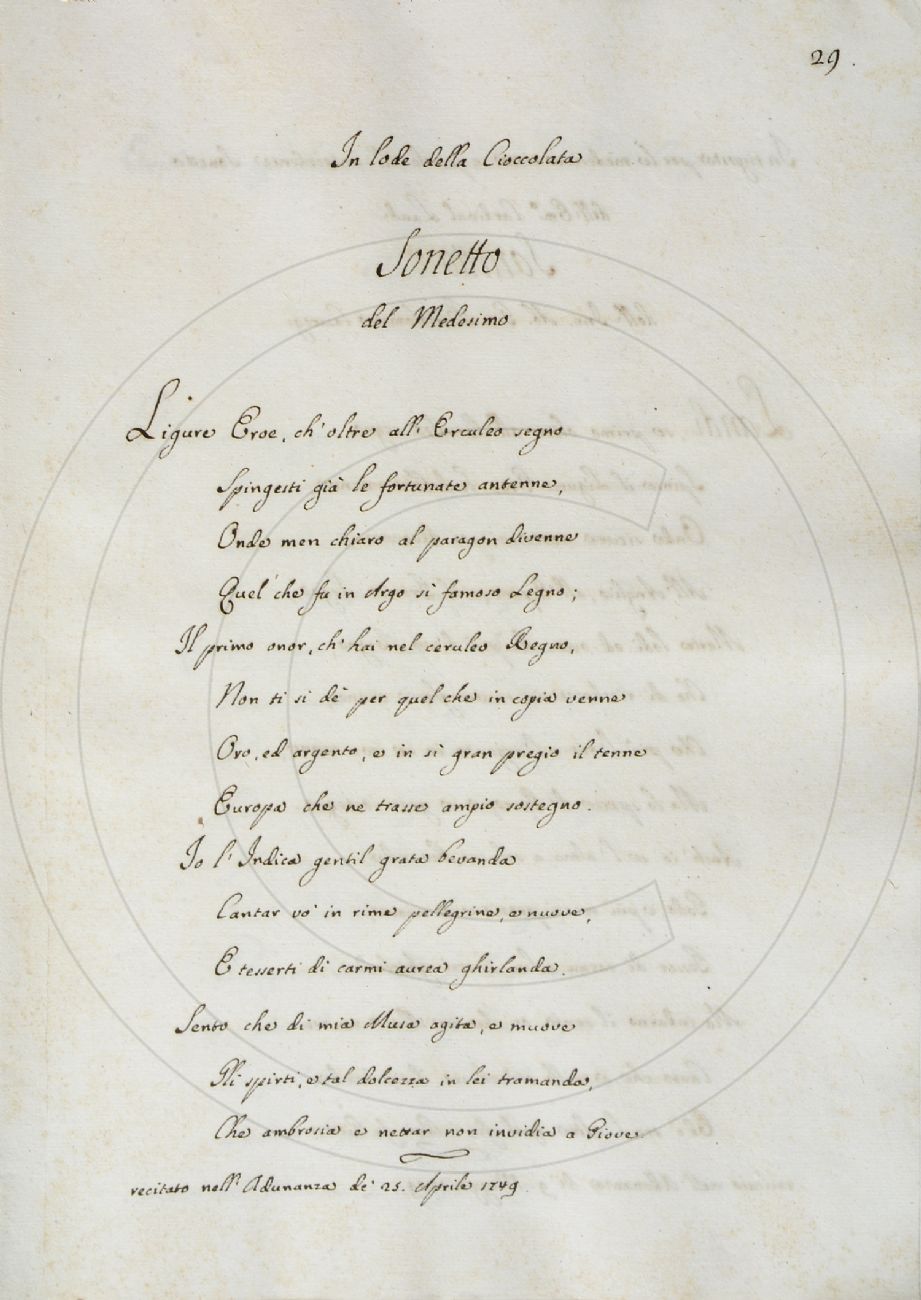 29.
In lode della Cioccolata
Sonetto
del Medesimo
Ligure Eroe, ch' oltre all' Erculeo segno
Spingesti già le fortunate antenne,
Onde men chiaro al paragon divenne
Quel che fu in Argo sì famoso Legno;
Il primo onor, ch' hai nel ceruleo Regno,
Non ti si dè per quel che in copia venne
Oro, ed argento, e in sì gran pregio il tenne
Europa che ne trasse ampio sostegno.
Io l' Indica gentil grata bevanda
Cantar vo' in rime pellegrine, e nuove,
E tesserti di carmi aurea ghirlanda.
Sento che di mia Musa agita, e muove
Gli spirti, e tal dolcezza in lei tramanda,
Che ambrosia e nettar non invidia a Giove.
recitato nell' Adunanza de' 25. Aprile 1749